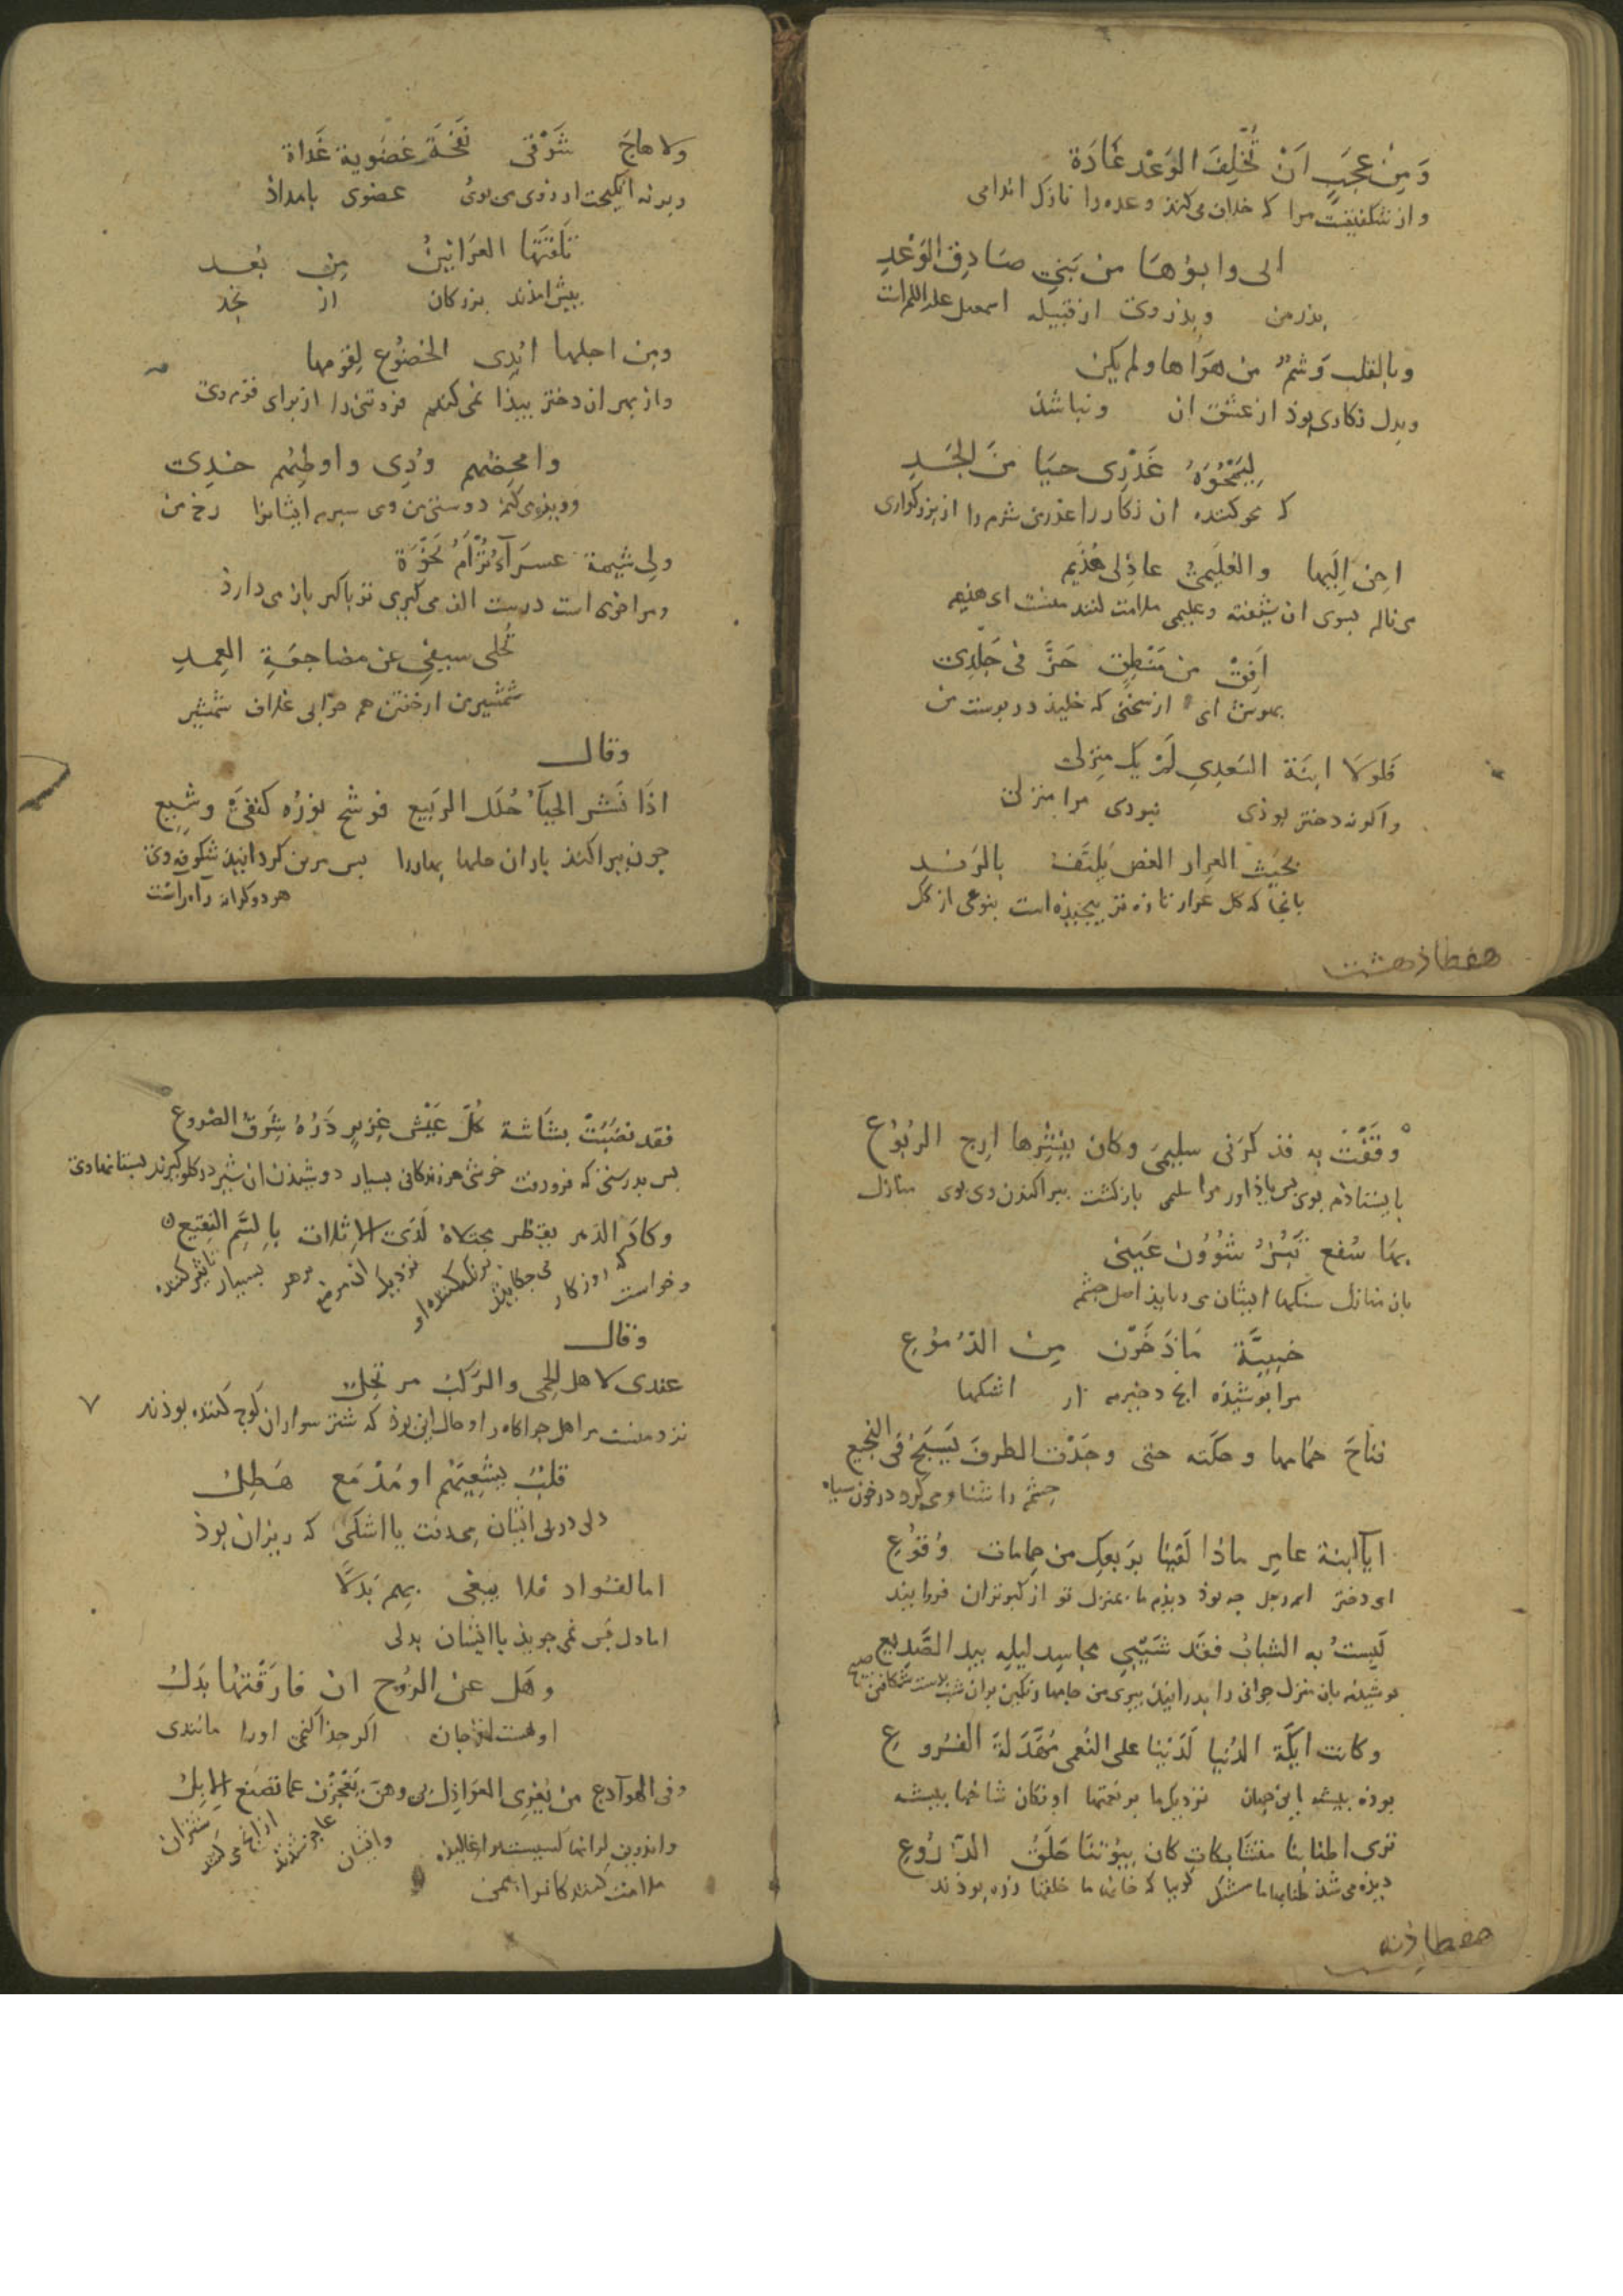 وَمِنْ عجَبٍ اَنْ تُخْلِفَ الوَعْدَ غَادَة
واز شكفتيست مرا كه خلاف مى كند وعده را نازك اندامى
الى وابوها من بَنِي صَادِقِ الوَعْدِ
پدر من وپدر وى از قبيله اسمعيل عليه السلام است
وبالقلب وَشمٌ من هَوَاها ولم يكن
وبدل نكارى بوذ از عشق ان ونباشذ
لِيَمْحُوَهُ غَدْرِى حيَا منَ المجَدِ
كه محو كننده ان نكار را غدر من شرم را از بزركوارى
احِن اِلَيها والعُلَيمىُّ عاذِلى هُذَيم
مى نالم بسوى ان شيفته وعليمى ملامت كننده منست اى هذيم
اَفِقْ من مَنْطِقٍ حَزَّ فى جَلْدِى
بهوش اى از سخنى كه خليذ در پوست من
فَلولَا ابنَة السَعدِي لَمْ يك منِزلى
واكر نه دختر بوذى نبودى مرا منزل
بحَيث العرار الغض يَلتَفُّ بالرَنْدِ
بانجا كه كل عرار تازه تر پيچيذه است بنوعى از كل
هفطاذ هشت
ولا هاجَ شَوْقى نَفْحَة غضَوية غَداة
وبرنه انكيخت ارزوى من بوى غضوى بامداذ
تَلَقَّتَها العرَانينُ مِن نجد
پيش امذند بزركان از نجد
ومِن اجلها ابْدِى الخضُوع لِقومها
واز بهر ان دختر پيذا مى كنم فروتنى را از براى قوم وى
وامحِضهم وُدِى واوطِئهم خدِى
وويژه مى كنم دوستى من وى سپرم ايشانرا رخ من
ولى شيمة عسرَآءُ تُرْأَمُ نَخْوَة
ومرا خوى است درشت الف مى كيرى تو با كبر باز مى دارذ
تُحلى سيفى عن مضاجعَةِ الغِمدِ
شمشير من از خفتن هم خوابى غلاف شمشير
وقال
اذَا نَشَر الحيَاُ حُلَل الربَيع فوشح نوْرُه كنفىَْ وشِيع
چون پراكند باران حلها بهاررا پس برين كردانيذ شكوفه وى
هر دو كرانه راه راست
وقَفْتُ به فذكرَنى سليمىَ وكان بِنَشْرِها ارِج الرُبُوُع
بايستاذم بوى پس ياذاور مرا سليمى بازكشت پراكندن وى بوى منازل
بهَا سُفع تَبُزُّ شؤُوُن عَينى
بان منازل سنكها ايشان مى ربايذ اصل چشم
خبيَّة مَاذَخَرْن مِن الدُمُوُعِ
مرا پوشيذه انچ ذخيره از اشكها
فناحَ حمَامها وحكَته حتى وجَدْت الطرفَ يَسبَحُ فى النجيع
چشم را شنا وى كرد در خون سياه
ايَاابنة عامِر ماذا لَقينا بِرَبعِك من حمِامات وُقوُعِ
اى دختر امر رجل چه بوذ ديذيم ما بمنزل تو از كبوتران فروايند
لَبِستُ به الشبابُ فقَد شَيّبي مجاسِد ليلِه بيدِ الصَّدِيِع
پوشيذم بان منزل جوانى را بدرانيذ پيرى من جامها رنكين بران شب بدست شكافتن صبح
وكانت ايكَة الدُنيا لَدَيْنا على النُعمى مُهَدَلةَ الفُرُوعِ
بوذه بيشه اين جهان نزديك ما بر نعمتها اونكان شاخها بيشه
ترى اطنابنا متشابكاتٍ كان بيُوُتنَا حَلَقُ الدُرُوُعِ
ديذه مى شذ طنابها ما مشبك كويا كه خانه ما حلقها زره بوذند
هفطاذ نه
فقد نضَبَتْ بشَاشة كُلّ عَيْش غزِيرٍ دَرُّهُ شَرِقِ الضُروع
پس بدرستى كه فرورفت خوشى هر زندكانى بسيار دوشيذن ان شير در كلو كيرند پستانها وى
وكادَ الدَهر يقطر مجتلاهُ لَدَى الاثلات بالسَّمِ النقيع
وخواست كه روزكار مى چكانيذ نزديك ان موضع بزهر بسيار تاثير كننده
وقال
عندى لاهل الحِمى والرَكبُ مرتحِل
نزد منست مر اهل چراكاه را وحال اين بوذ كه شتر سواران كوچ كننده بوذند
قلبٌ يشيعُهم او مَدْمَع هَطِلُ
دلى در پى ايشان مى رفت يا اشكى كه ريزان بوذ
اما الفؤاد فلا يبغى بهم بَدلًا
اما دل پس نمى جويذ با ايشان بدلى
وهَل عن الرُوُح ان فارَقْتهُا بَدَلُ
او هست از جان اكر جذا كنمى اورا مانندى
وفى الهوآدج من يُغرِى العوَاذِل بى وهنّ يَعْجِزْن عما تصَنع الاِبِلُ
واندرين كرانها كسيست براغاليذه وايشان عاجز شذند از انچ مى كنند شتران
ملامت كنند كانرا بمن